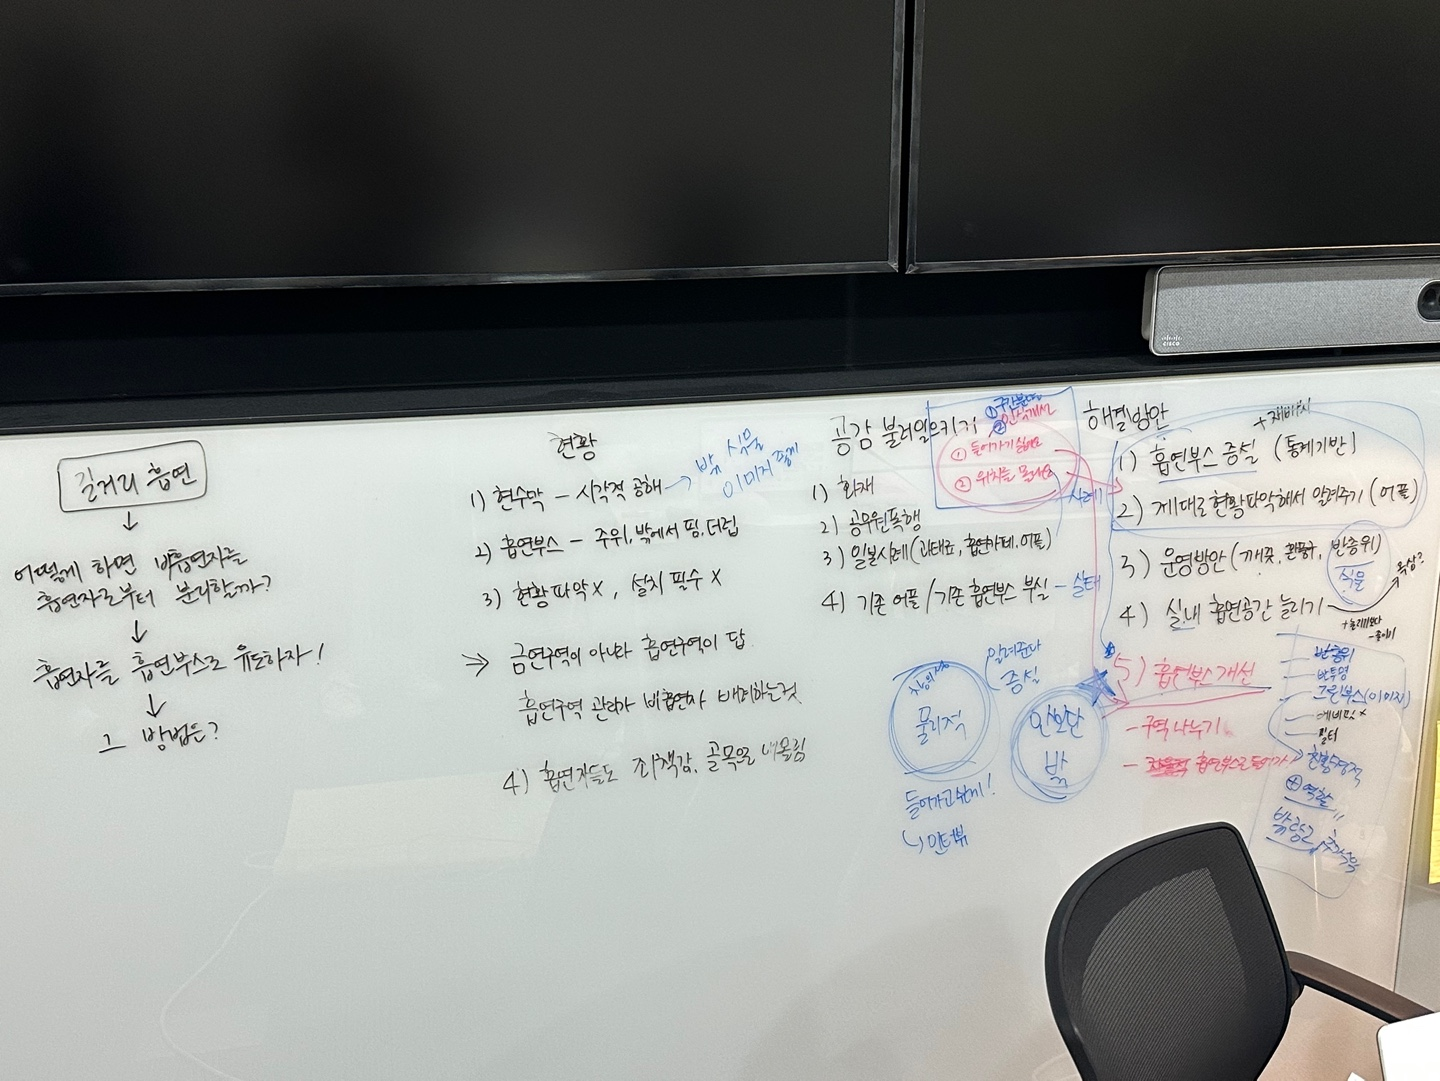 길거리 흡연
↓
어떻게 하면 비흡연자를
흡연자로부터 분리할까?
↓
흡연자를 흡연부스로 유도하자!
↓
그 방법은?
현황
1) 현수막 - 시각적 공해 →
식물
이미지
2) 흡연부스 - 주위, 밖에서 핌, 더럽
3) 현황파악 X, 설치 필수 X
⇒ 금연구역이 아니라 흡연구역이 답
흡연구역 관리가 비흡연자 배려하는것
4) 흡연자들도 죄책감, 골목으로 내몰림
공감 불러일으키기
① 구간분리
② 인식개선
① 들어가기 싫어요
② 위치를 몰라요
1) 화재
2) 공무원폭행
3) 일본사례(과태료, 흡연카페, 어플)
4) 기존 어플/기존 흡연부스 부실 - 실태
사례
창의성
물리적
알려준다
증설
들어가고싶게!
↳ 인터뷰
해결방안
+ 재배치
1) 흡연부스 증설 (통계기반)
2) 제대로 현황파악해서 알려주기 (어플)
3) 운영방안 (깨끗, 환풍구, 반층위)
식물
4) 실내 흡연공간 늘리기
옥상?
5) 흡연부스 개선
- 구역 나누기
- 흡연부스로 들어가
반층위
반투명
그린부스(이미지)
에비밋 x
필터
친환경적
⊕ 역할
CISCO